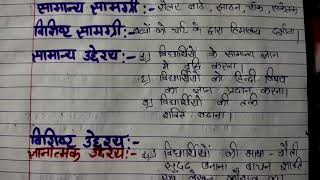 सामान्य सामग्री:- रोलर बोर्ड, झाडन, चॉक, संकेतक
विशिष्ट सामग्री:- बच्चों को चार्ट के द्वारा हिमालय दर्शाना।
सामान्य उद्देश्य:- 1.) विद्यार्थियों के सामान्य ज्ञान
में वृद्धि करना।
2.) विद्यार्थियों को हिन्दी विषय
का ज्ञान प्रदान करना।
3.) विद्यार्थियों की तर्क
शक्ति बढाना।
विशिष्ट उद्देश्य:-
ज्ञानात्मक उद्देश्य:- 1.) विद्यार्थियों की भाषा-शैली
सुदृढ बनाना वाचन शक्ति